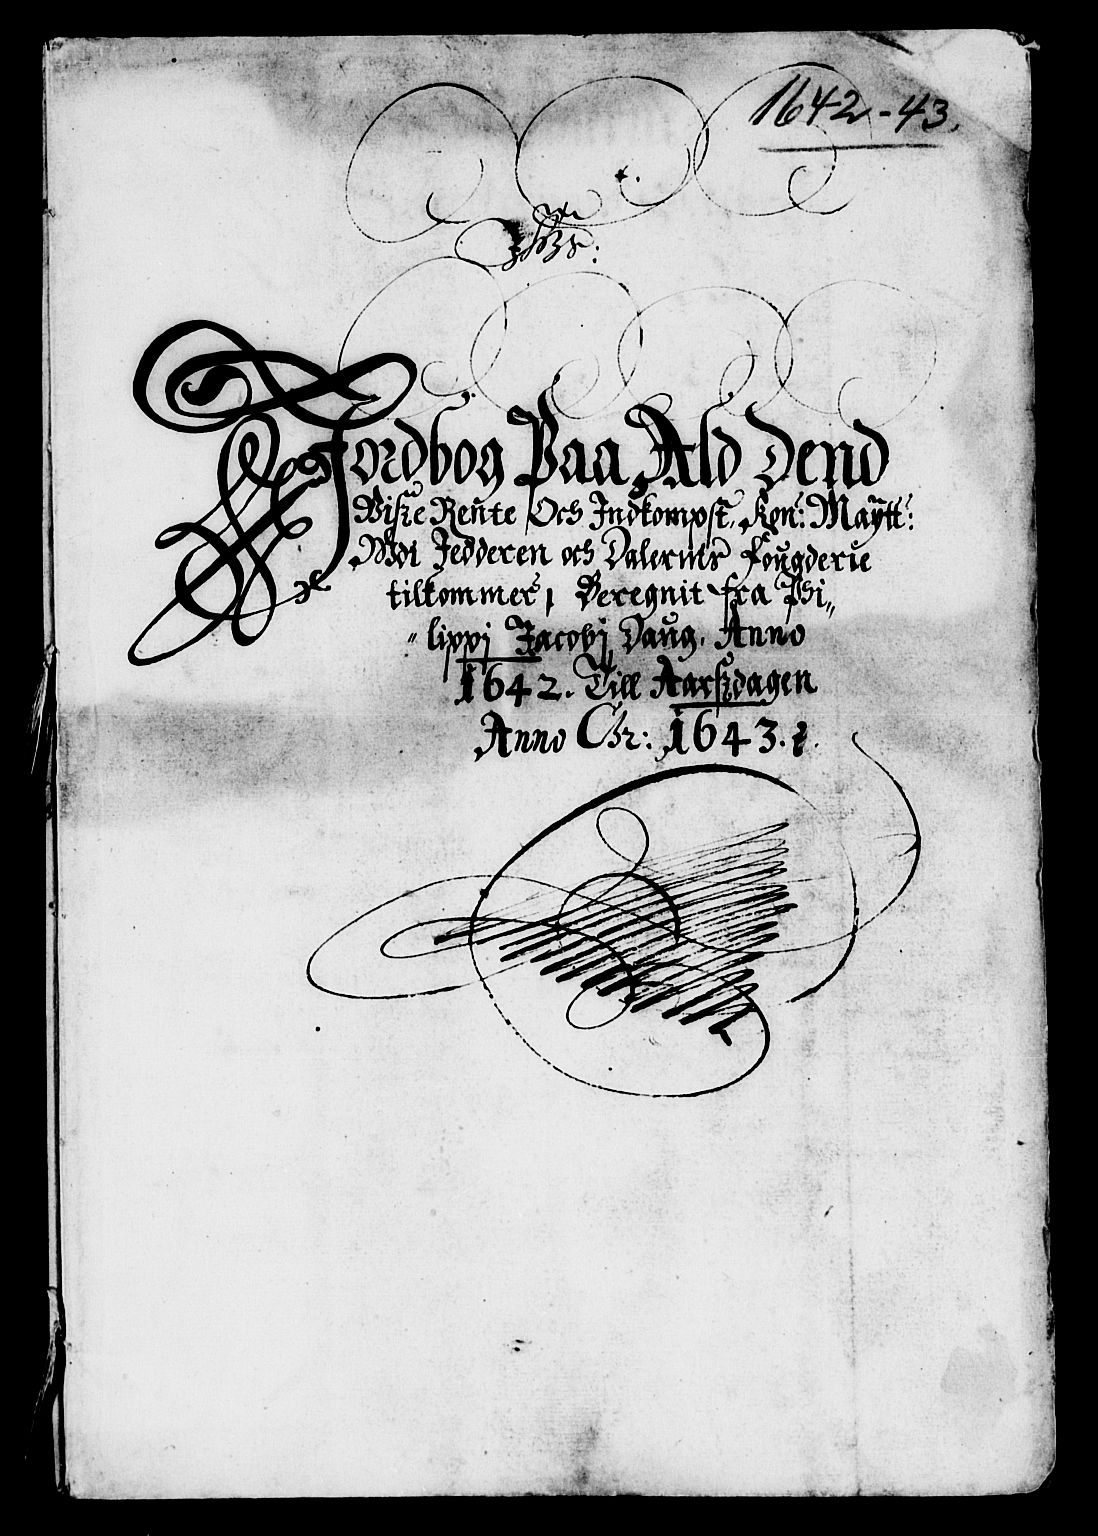 1642-43.
Jordbog Paa Ald Dend
Visze Rente Och Indkompst, Kon: Maÿtt:
Wdi Jedderen och Dalernis Fougderie
tilkommer, Beregnit fra Phi„
„lippi Jacobi Daug. Anno
1642. Till Aarszdagen
Anno Chr: 1643.